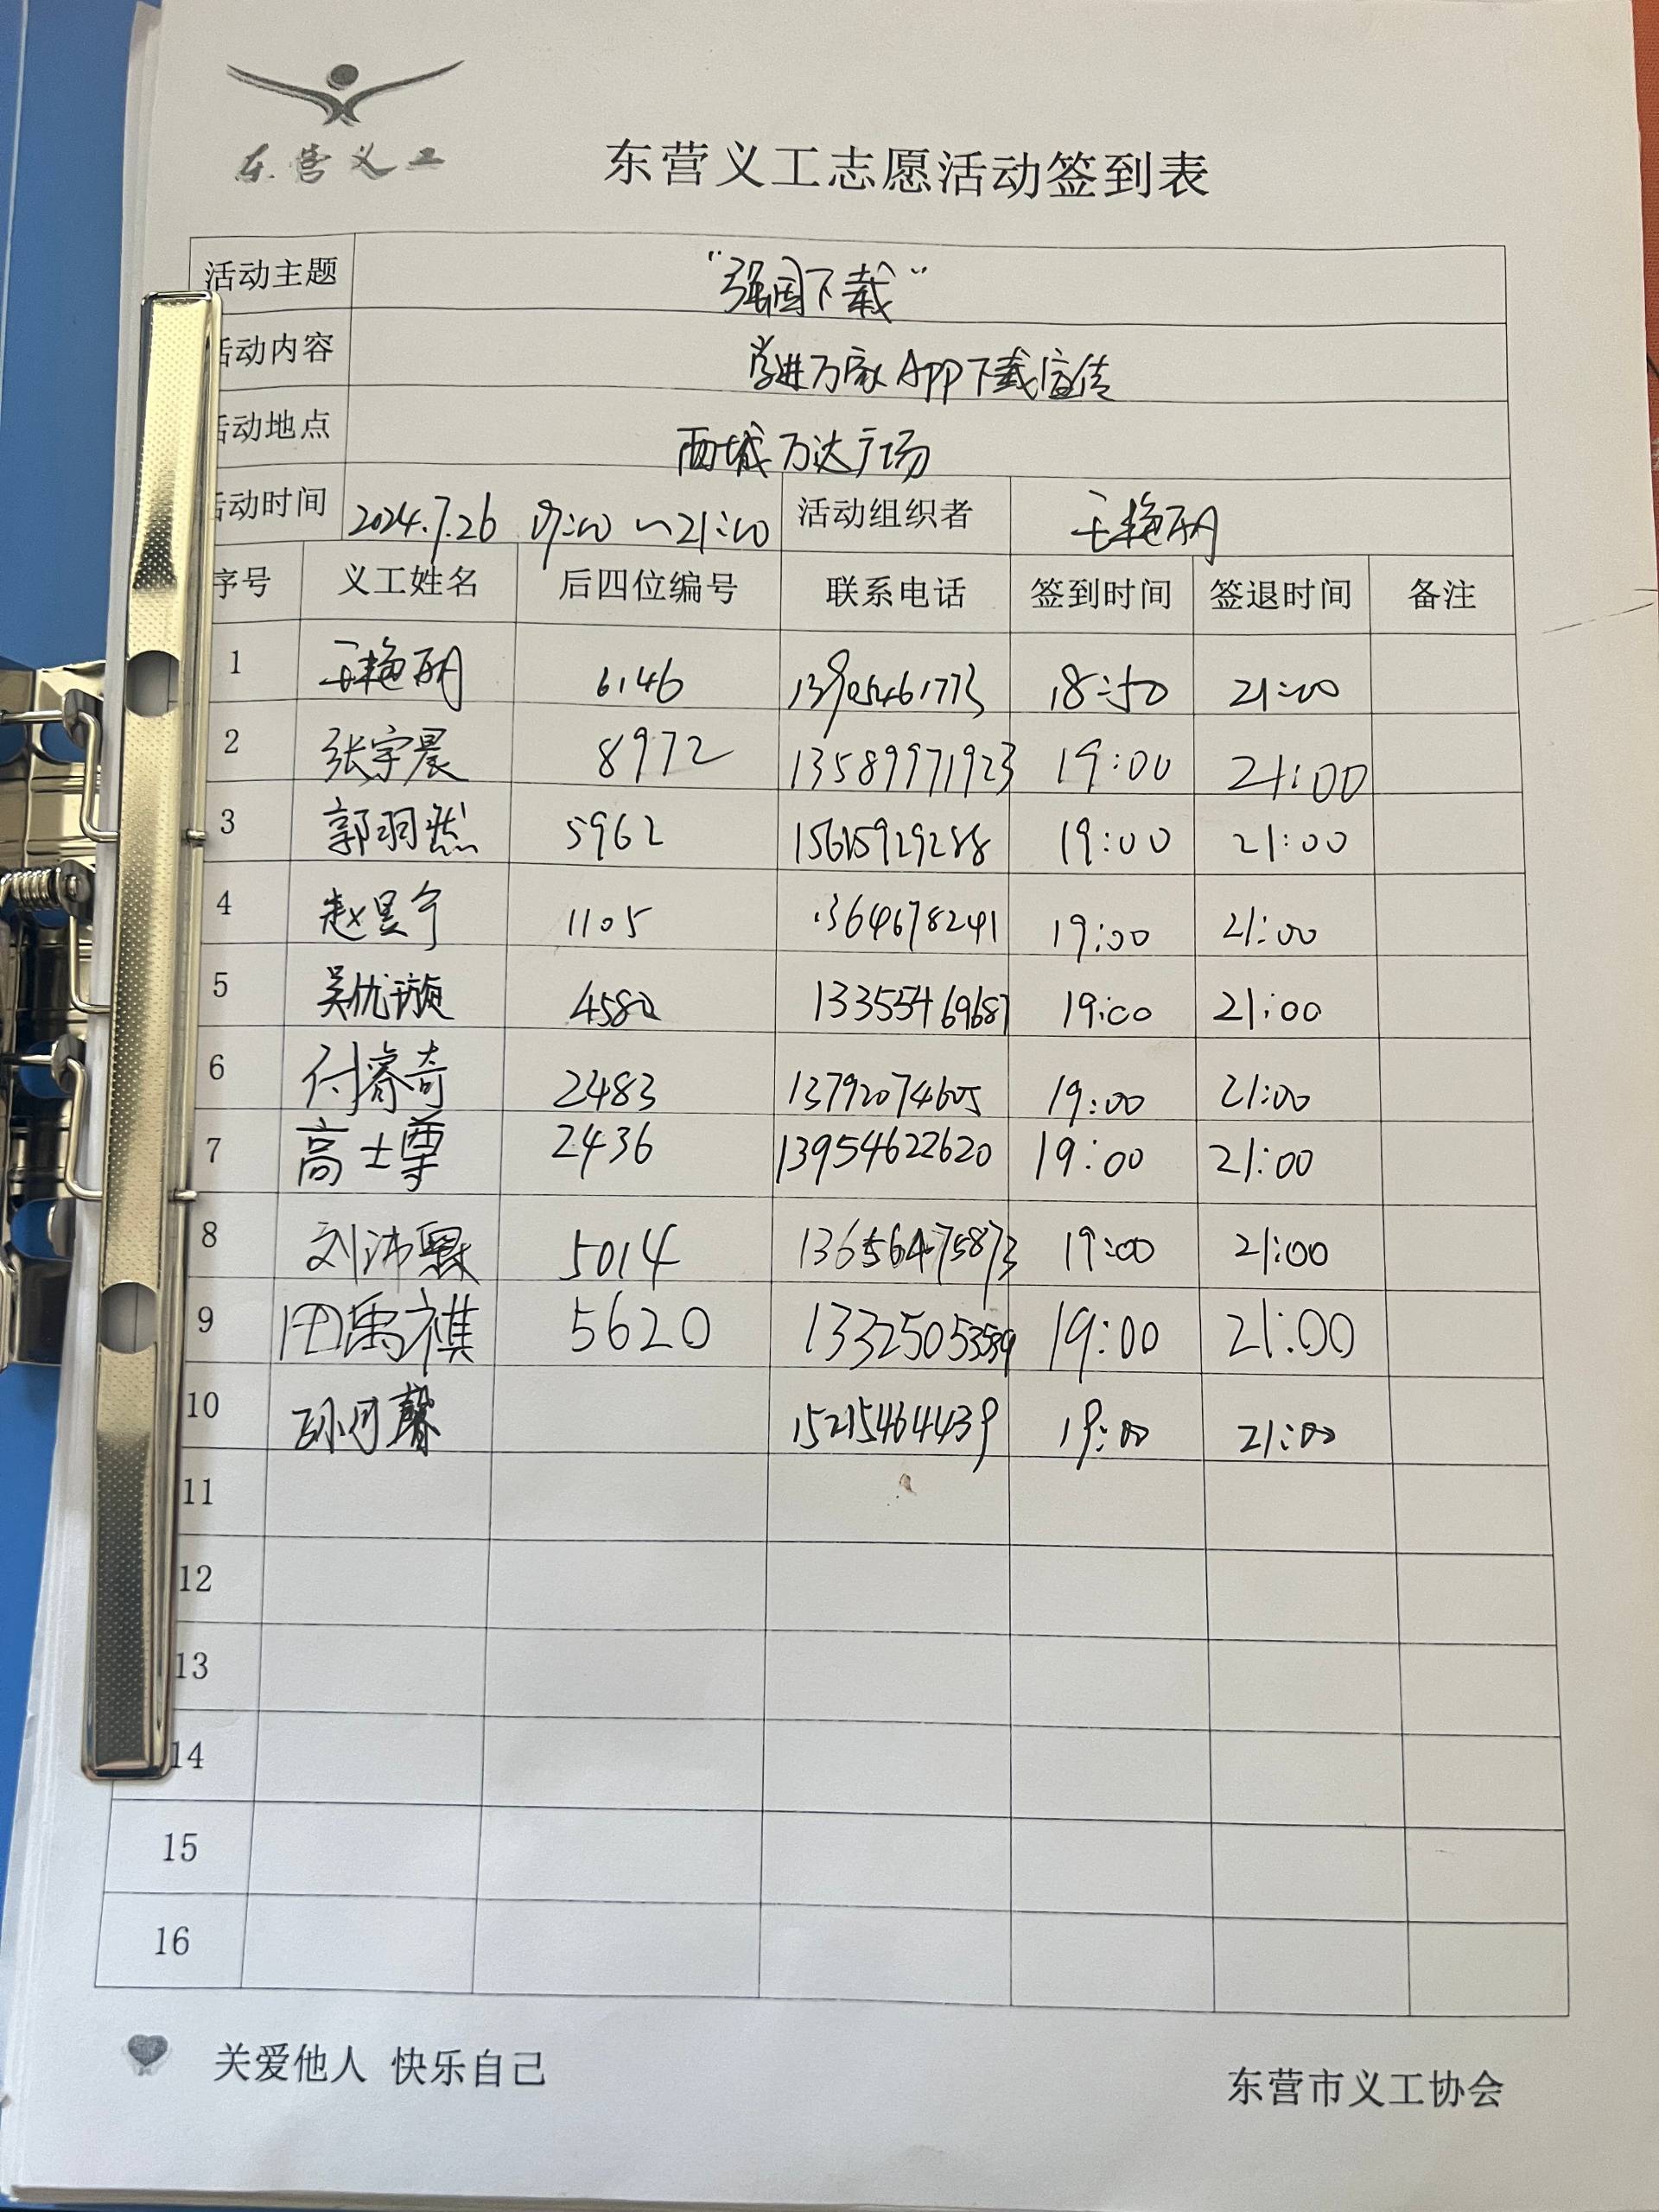 东营义工
东营义工志愿活动签到表
活动主题 “强国下载”
活动内容 学进万家App下载宣传
活动地点 西城万达广场
活动时间 2024.7.26 19:00~21:00 活动组织者 王艳丽
序号 义工姓名 后四位编号 联系电话 签到时间 签退时间 备注
1 王艳丽 6146 13905461773 18:50 21:00
2 张宇晨 8972 13589971923 19:00 21:00
3 郭羽然 5962 15615929288 19:00 21:00
4 赵昱宁 1105 1364678241 19:00 21:00
5 吴优璇 4580 13355469687 19:00 21:00
6 付睿奇 2483 13792074605 19:00 21:00
7 高士尊 2436 13954622620 19:00 21:00
8 刘沛 5014 13656475873 19:00 21:00
9 田禹祺 5620 19:00 21:00
10 孙可馨 15215464439 19:00 21:00
11
12
13
14
15
16
关爱他人 快乐自己
东营市义工协会